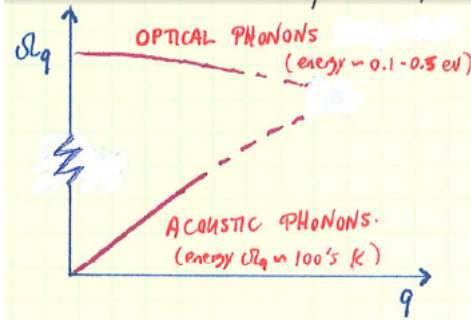 Ω_q
OPTICAL PHONONS
(energy ~ 0.1-0.5 eV)
ACOUSTIC PHONONS.
(energy Ω_q ~ 100's K)
q